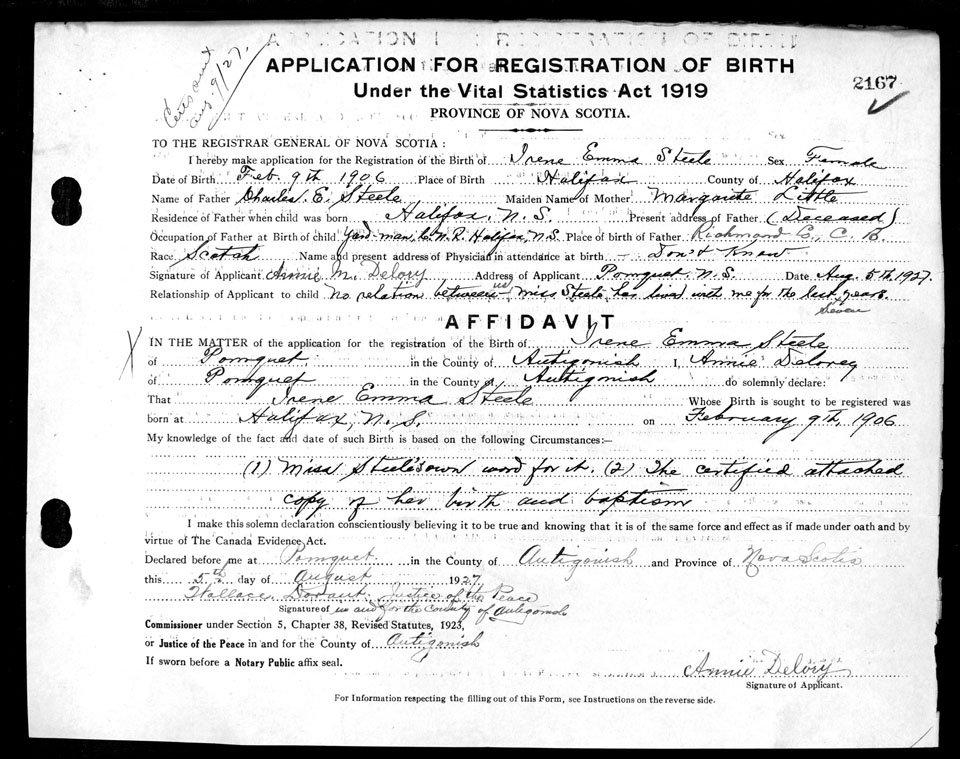 Cert sent
Aug. 9/27.
APPLICATION FOR REGISTRATION OF BIRTH
Under the Vital Statistics Act 1919
PROVINCE OF NOVA SCOTIA.
2167
TO THE REGISTRAR GENERAL OF NOVA SCOTIA:
I hereby make application for the Registration of the Birth of Irene Emma Steele Sex Female
Date of Birth Feb. 9th 1906 Place of Birth Halifax County of Halifax
Name of Father Charles. E. Steele Maiden Name of Mother Margarite Little
Residence of Father when child was born Halifax, N.S. Present address of Father (Deceased)
Occupation of Father at Birth of child Yard-man, C.N.R. Halifax, N.S. Place of birth of Father Richmond Co., C.B.
Race Scotch Name and present address of Physician in attendance at birth - Don't Know
Signature of Applicant Annie M. Delory Address of Applicant Pomquet, N.S. Date Aug 5th, 1927.
Relationship of Applicant to child No relation between us, Miss Steele has lived with me for the last seven years.
AFFIDAVIT
X IN THE MATTER of the application for the registration of the Birth of Irene Emma Steele
of Pomquet in the County of Antigonish I, Annie Delorey
of Pomquet in the County of Antigonish do solemnly declare:
That Irene Emma Steele Whose Birth is sought to be registered was
born at Halifax, N.S. on February 9th, 1906
My knowledge of the fact and date of such Birth is based on the following Circumstances:-
(1) Miss Steele's own word for it. (2) The certified attached
copy of her birth and baptism
I make this solemn declaration conscientiously believing it to be true and knowing that it is of the same force and effect as if made under oath and by
virtue of The Canada Evidence Act.
Declared before me at Pomquet in the County of Antigonish and Province of Nova Scotia
this 5th day of August 1927
Wallace Justice of the Peace
Signature of in and for the County of Antigonish
Commissioner under Section 5, Chapter 38, Revised Statutes, 1923,
or Justice of the Peace in and for the County of Antigonish
If sworn before a Notary Public affix seal.
Annie Delory
Signature of Applicant.
For Information respecting the filling out of this Form, see Instructions on the reverse side.